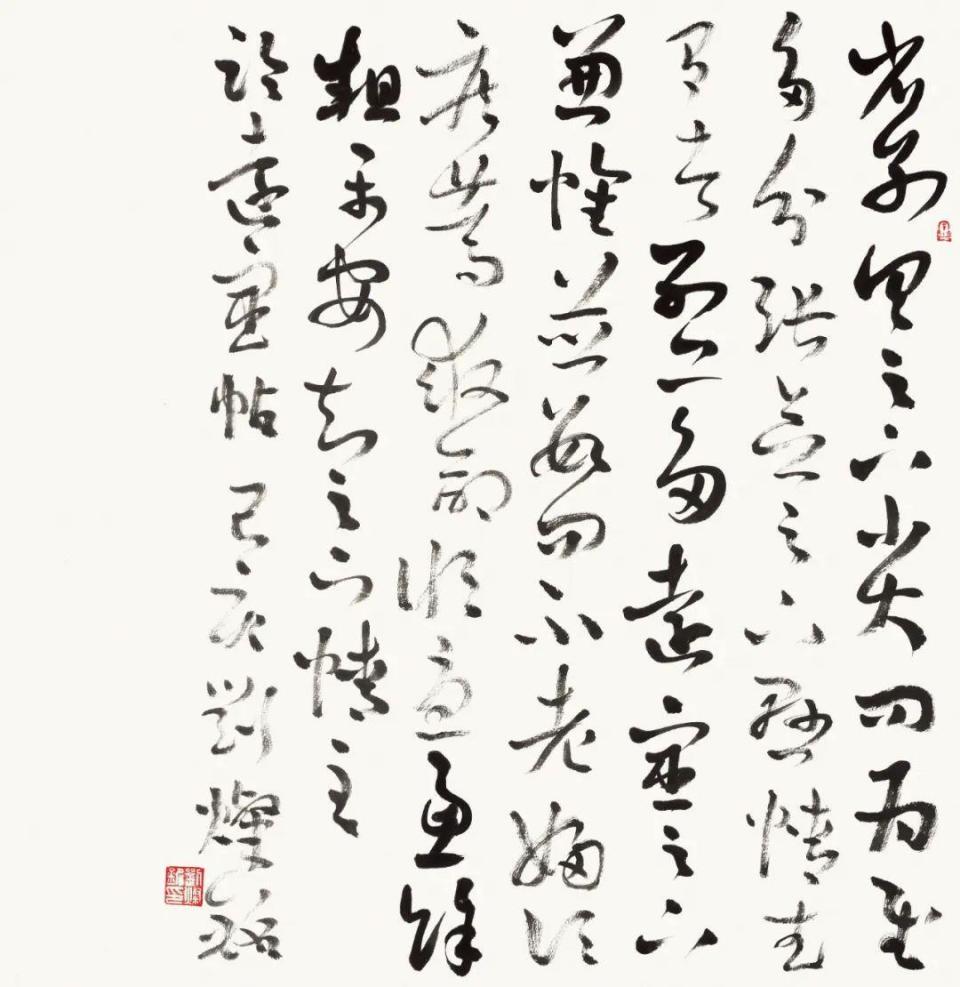 省別具足下小大問為慰
多分張念足下懸情武
昌諸子亦多遠宦足下
兼懷並數問不老婦頃
疾篤救命恒憂慮餘
粗平安知足下情至
臨遠宦帖 己亥 劉燦銘